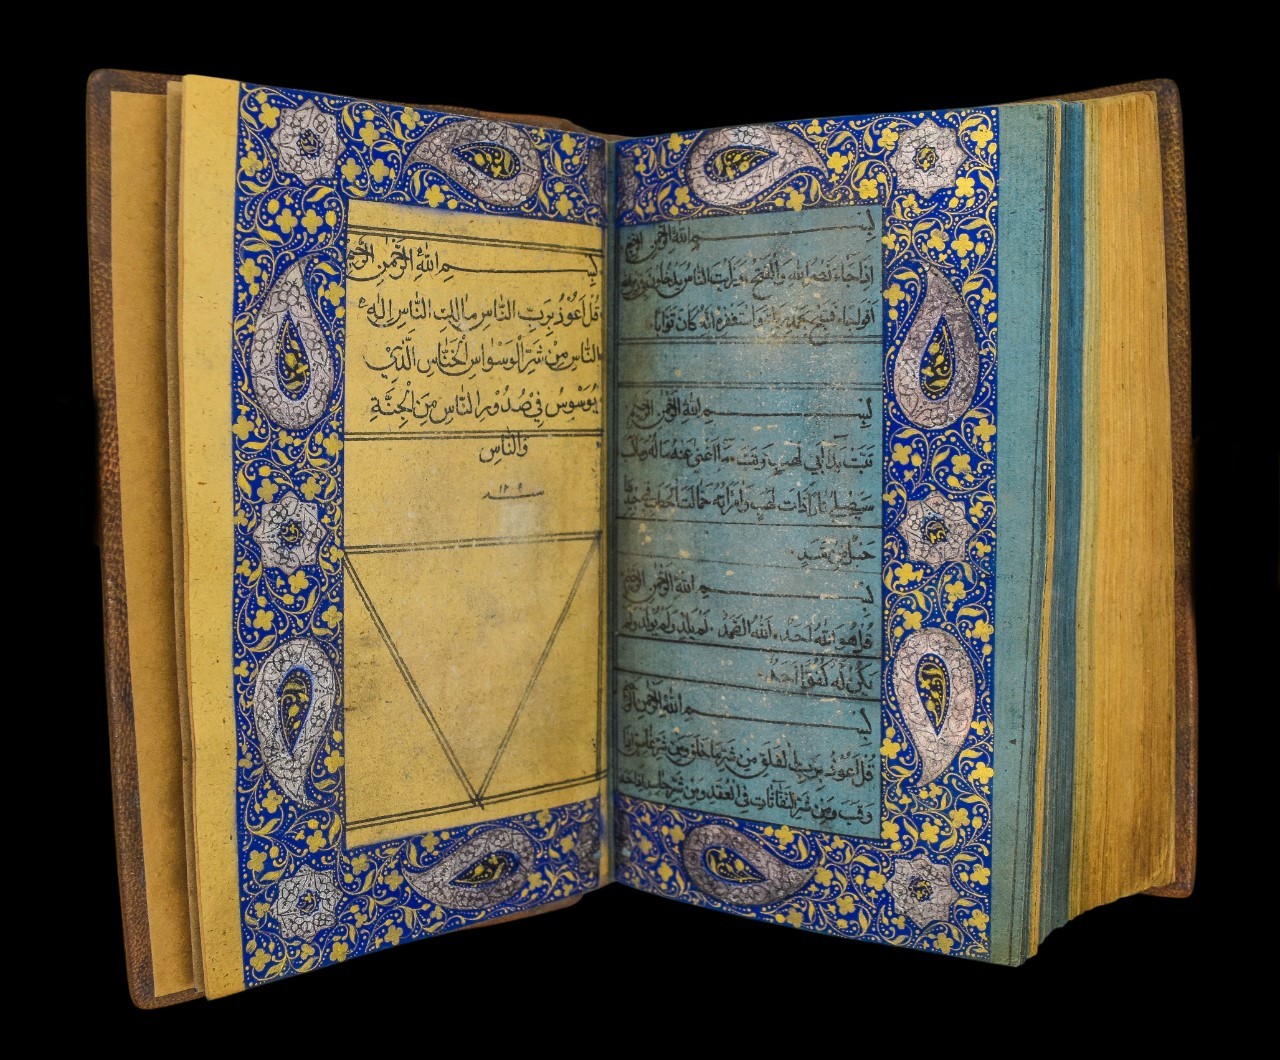 بسم الله الرحمن الرحيم
اذا جاء نصر الله والفتح ورايت الناس يدخلون في دين الله
افواجا فسبح بحمد ربك واستغفره انه كان توابا
بسم الله الرحمن الرحيم
تبت يدا ابي لهب وتب ما اغنى عنه ماله وما ك
سيصلى نارا ذات لهب وامراته حمالت الحطب في جيدها
حبل من مسد
بسم الله الرحمن الرحيم
قل هو الله احد الله الصمد لم يلد ولم يولد ولم
يكن له كفوا احد
بسم الله الرحمن الرحيم
قل اعوذ برب الفلق من شر ما خلق ومن شر غاسق اذا
وقب ومن شر النفاثات في العقد ومن شر حاسد اذا حسد
بِسْمِ اللهِ الرَّحْمٰنِ الرَّحِيْمِ
قُلْ اَعُوْذُ بِرَبِّ النَّاسِ مَالِكِ النَّاسِ اِلٰهِ
النَّاسِ مِنْ شَرِّ الْوَسْوَاسِ الْخَنَّاسِ الَّذِيْ
يُوَسْوِسُ فِيْ صُدُوْرِ النَّاسِ مِنَ الْجِنَّةِ
وَالنَّاسِ
سنه ١٢٠٩